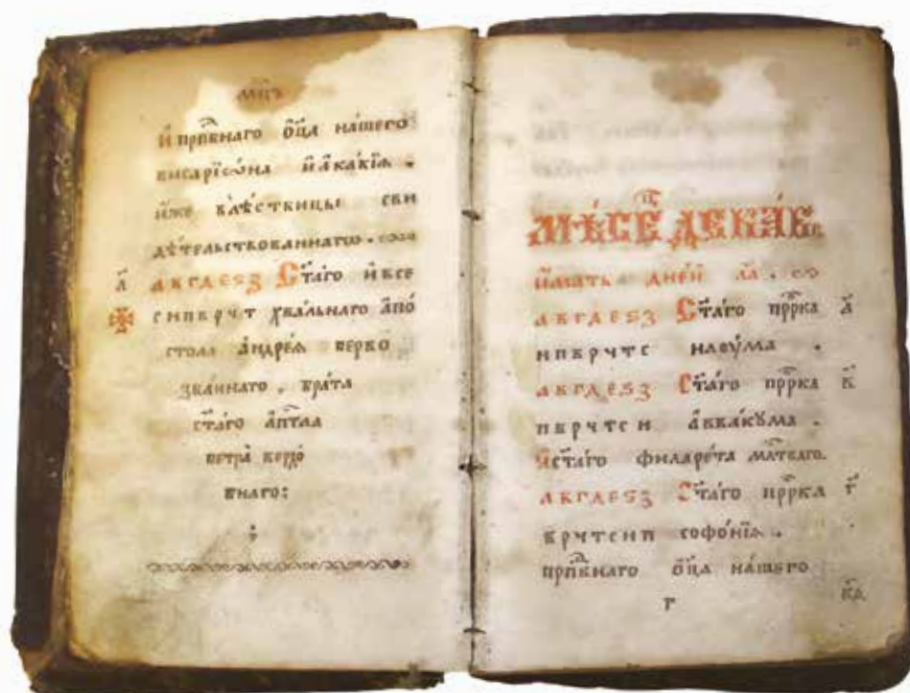 мц҃ъ
И҆ прпⷣбнаго ѻ҆ц҃а на́шего
виссарїѡ́на и҆ а҆ка́кїѧ .
и҆́же в лѣ́ствицы сви
дѣ́тельствованнагѡ .
л҃ а в г д е ѕ з Ст҃а́го и҆ все
с н п в р ч т хва́льнаго а҆по́
стола а҆ндре́ѧ перво
зва́ннаго . бра́та
ст҃а́го а҆пⷭ҇тла
петра̀ верхо
внаго :
МѢ́СЕЦ ДЕКА́Б
и҆́мать дне́й л҃а .
а в г д е ѕ з Ст҃а́го прⷪ҇рка а҃
н п в р ч т с нау́ма .
а в г д е ѕ з Ст҃а́го прⷪ҇рка в҃
п в р ч т с н а҆вваку́ма .
И҆ ст҃а́го филаре́та млⷭ҇тваго .
а в г д е ѕ з Ст҃а́го прⷪ҇рка г҃
в р ч т с н п софо́нїѧ .
прпⷣбнаго ѻ҆ц҃а на́шего
г